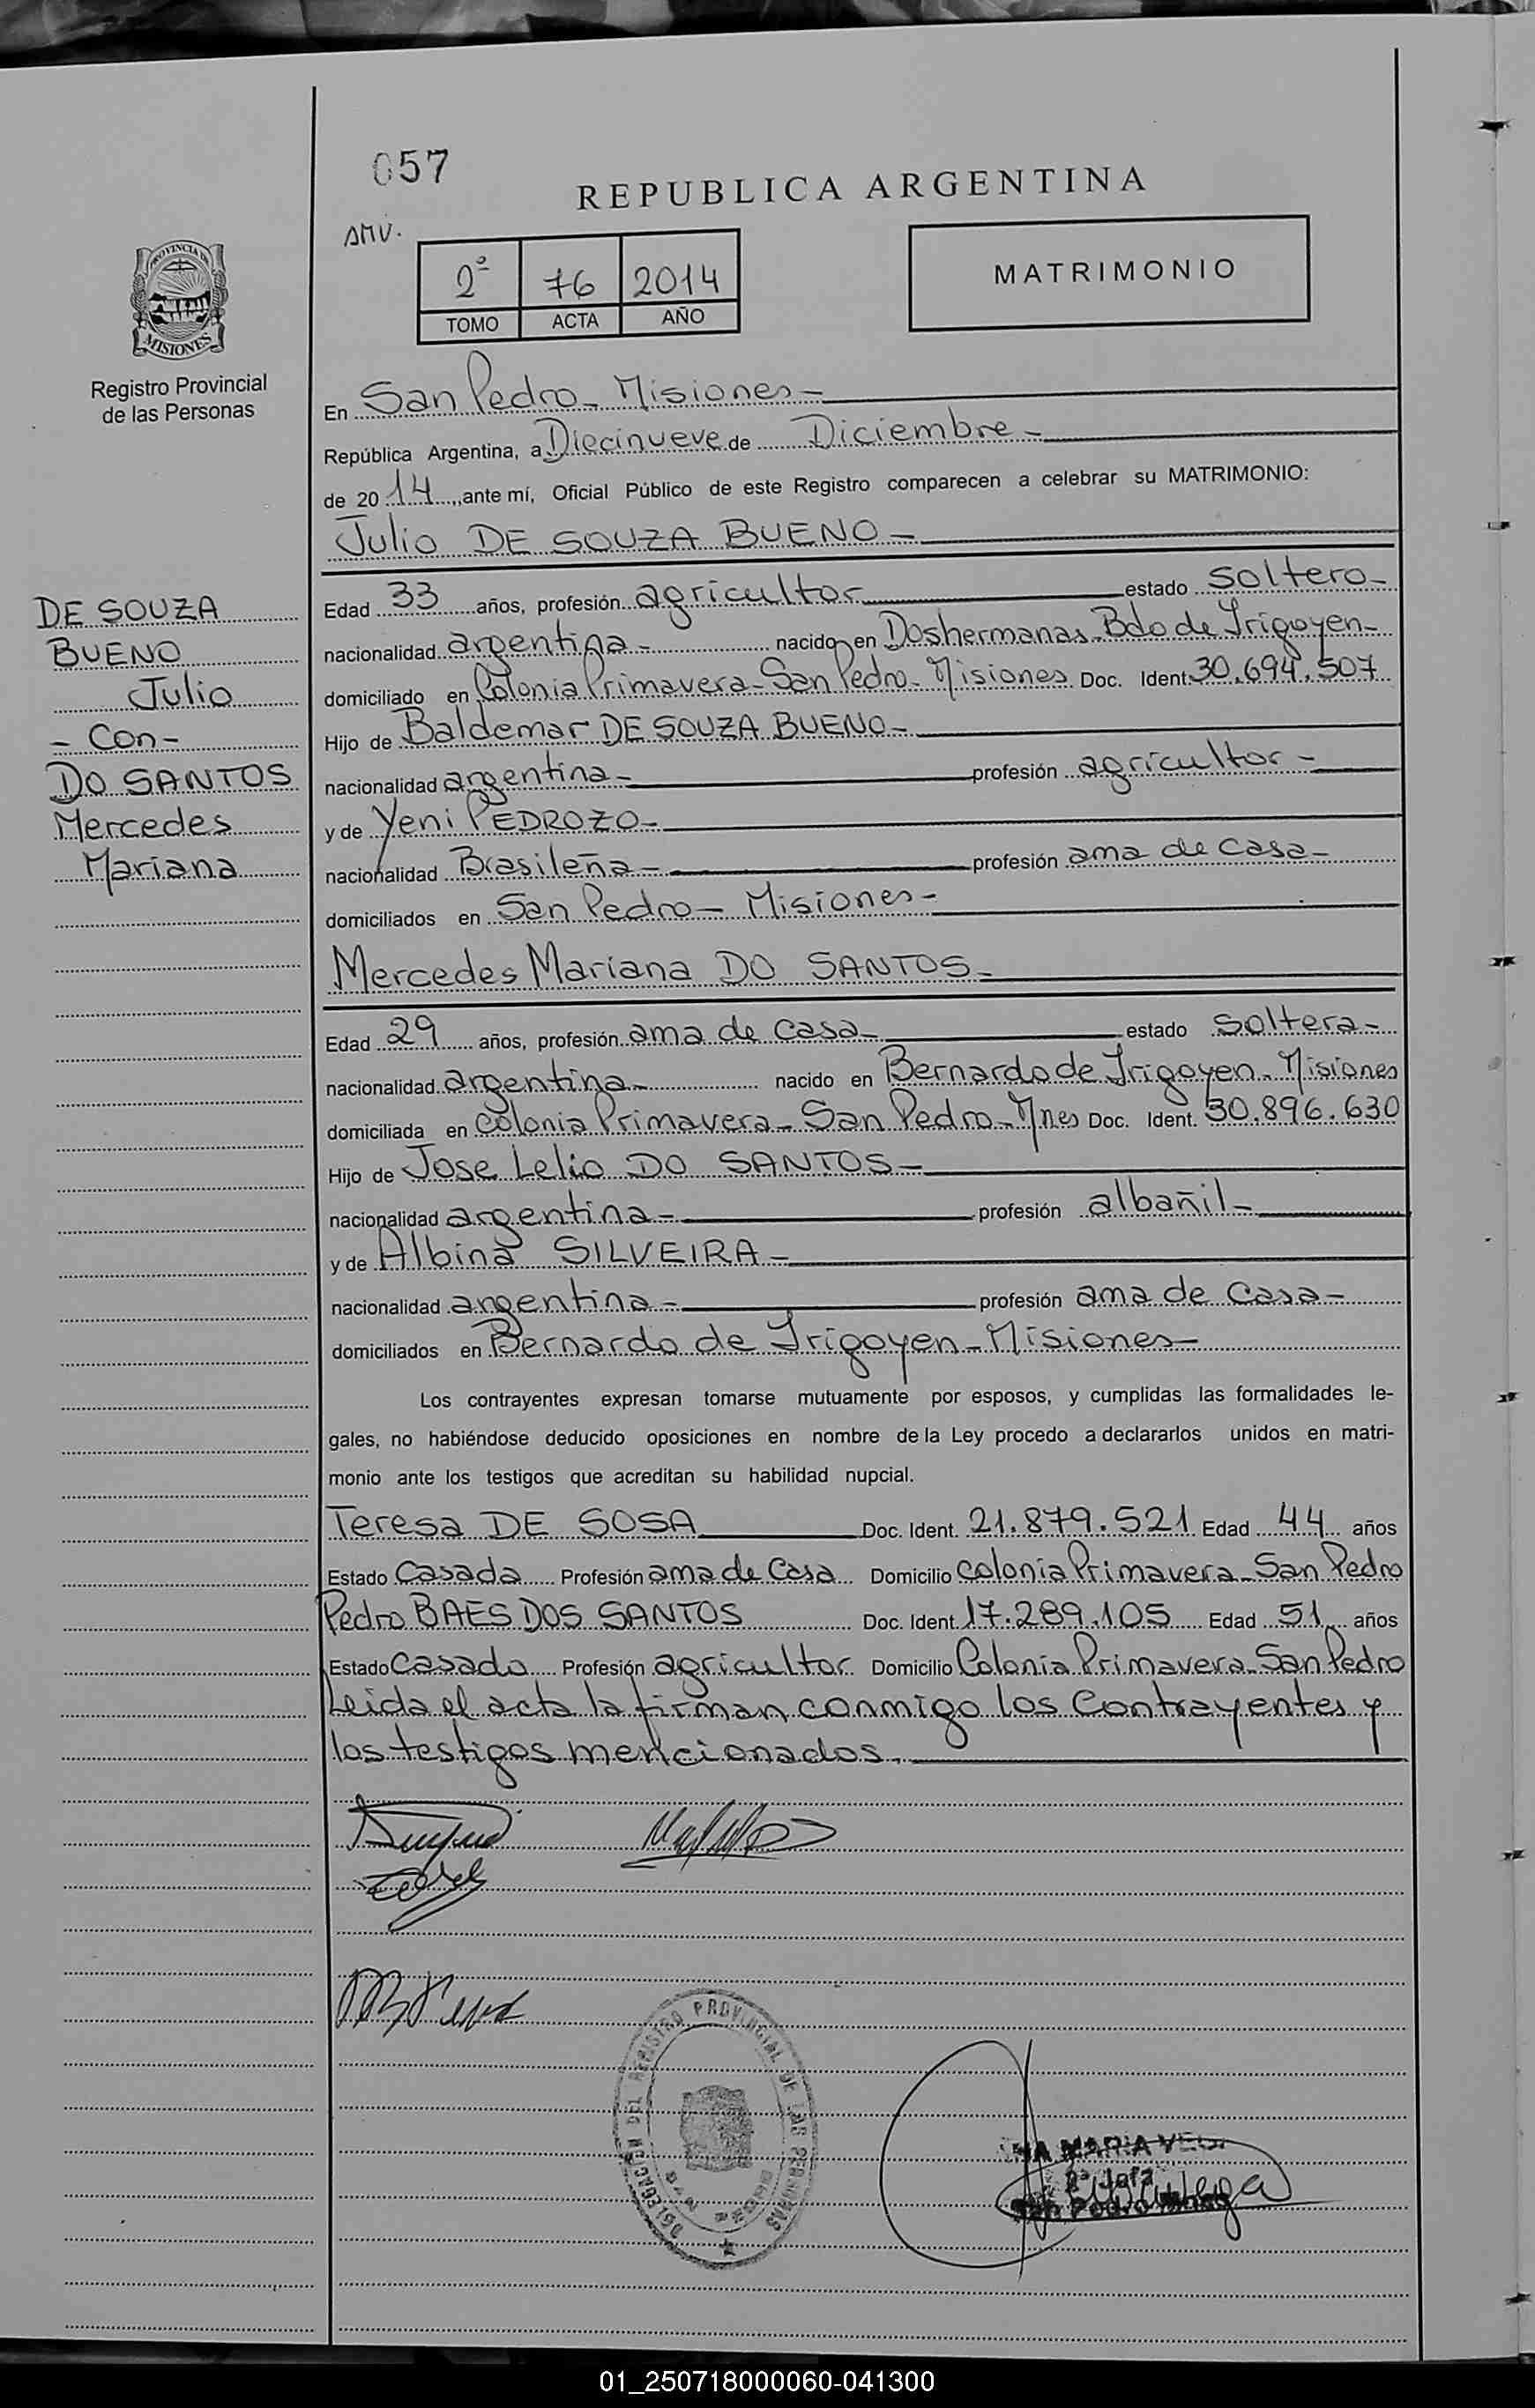 057
REPUBLICA ARGENTINA
AMV.
2º 76 2014
TOMO ACTA AÑO
MATRIMONIO
PROVINCIA DE
MISIONES
Registro Provincial
de las Personas
En San Pedro - Misiones -
República Argentina, a Diecinueve de Diciembre -
de 20 14, ante mí, Oficial Público de este Registro comparecen a celebrar su MATRIMONIO:
Julio DE SOUZA BUENO -
DE SOUZA
BUENO
Julio
- Con -
DO SANTOS
Mercedes
Mariana
Edad 33 años, profesión agricultor estado soltero -
nacionalidad argentina - nacido en Doshermanas - Bdo de Irigoyen -
domiciliado en Colonia Primavera - San Pedro - Misiones Doc. Ident. 30.694.507
Hijo de Baldemar DE SOUZA BUENO -
nacionalidad argentina - profesión agricultor -
y de Yeni PEDROZO -
nacionalidad Brasileña - profesión ama de casa -
domiciliados en San Pedro - Misiones -
Mercedes Mariana DO SANTOS -
Edad 29 años, profesión ama de casa - estado soltera -
nacionalidad argentina - nacido en Bernardo de Irigoyen - Misiones
domiciliada en Colonia Primavera - San Pedro - Mnes Doc. Ident. 30.896.630
Hijo de Jose Lelio DO SANTOS -
nacionalidad argentina - profesión albañil -
y de Albina SILVEIRA -
nacionalidad argentina - profesión ama de casa -
domiciliados en Bernardo de Irigoyen - Misiones -
Los contrayentes expresan tomarse mutuamente por esposos, y cumplidas las formalidades le-
gales, no habiéndose deducido oposiciones en nombre de la Ley procedo a declararlos unidos en matri-
monio ante los testigos que acreditan su habilidad nupcial.
Teresa DE SOSA Doc. Ident. 21.879.521 Edad 44 años
Estado Casada Profesión ama de Casa Domicilio Colonia Primavera - San Pedro
Pedro BAES DOS SANTOS Doc. Ident. 17.289.105 Edad 51 años
Estado Casado Profesión agricultor Domicilio Colonia Primavera - San Pedro
Leida el acta la firman conmigo los Contrayentes y
los testigos mencionados.
DELEGACION DEL REGISTRO PROVINCIAL DE LAS PERSONAS
SAN PEDRO
ANA MARIA VEGA
2º Jefa
San Pedro Mnes
01_250718000060-041300